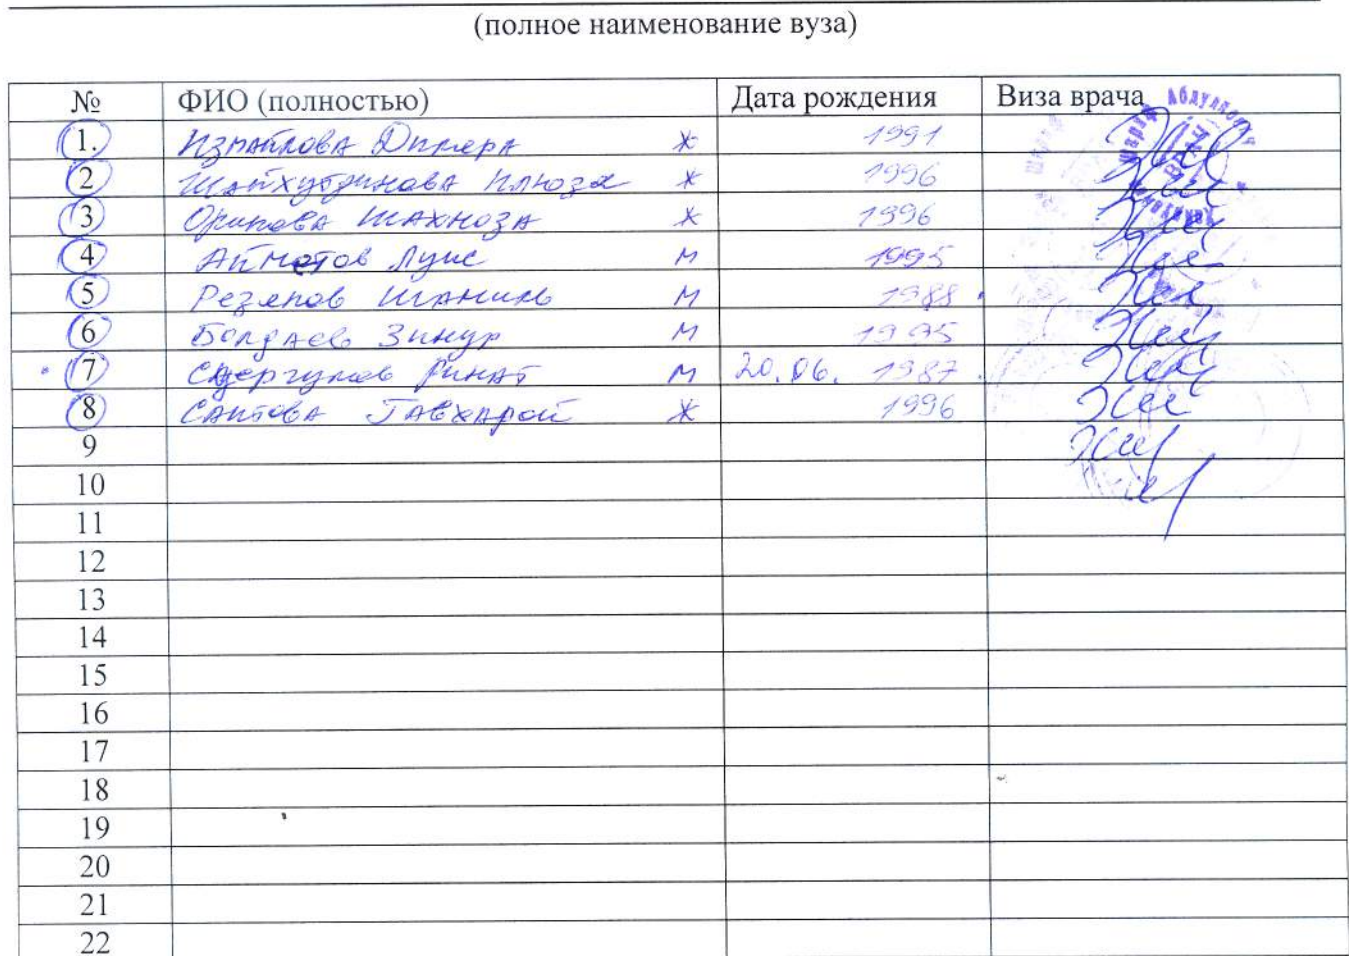 (полное наименование вуза)
№ ФИО (полностью) Дата рождения Виза врача
1. Измайлова Диляра ж 1991
2 Шайхутдинова Илюза ж 1996
3 Орипова Шахноза ж 1996
4 Айметов Луис м 1995
5 Резяпов Шамиль м 1988
6 Болдаев Зинур м 1995
7 Ринат м 20.06. 1987
8 Саитова Гавхарой ж 1996
9
10
11
12
13
14
15
16
17
18
19
20
21
22